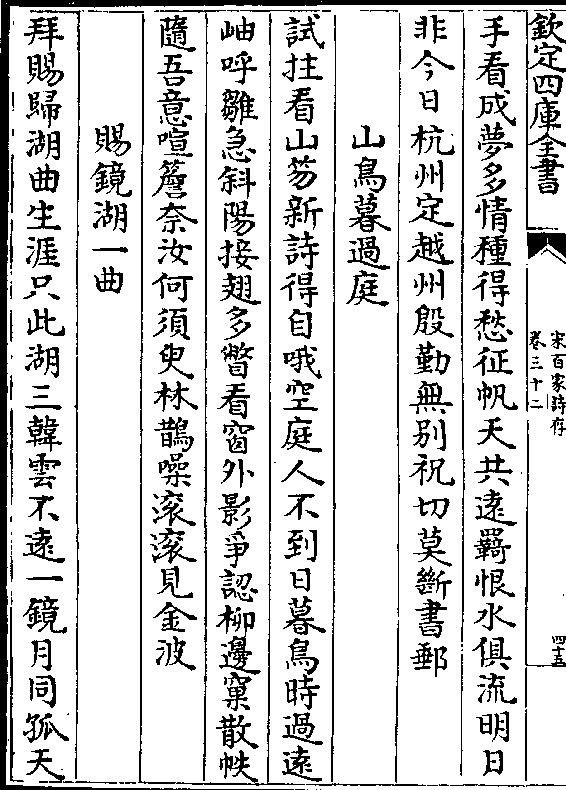 欽定四庫全書
宋百家詩存
卷三十二
四十五
手看成夢多情種得愁征帆天共遠羇恨水俱流明日
非今日杭州定越州殷勤無別祝切莫斷書郵
山鳥暮過庭
試拄看山笏新詩得自哦空庭人不到日暮鳥時過遠
岫呼雛急斜陽接翅多瞥看窗外影爭認柳邊窠散帙
隨吾意喧簷奈汝何須臾林鵲噪滚滚見金波
賜鏡湖一曲
拜賜歸湖曲生涯只此湖三韓雲不遠一鏡月同孤天